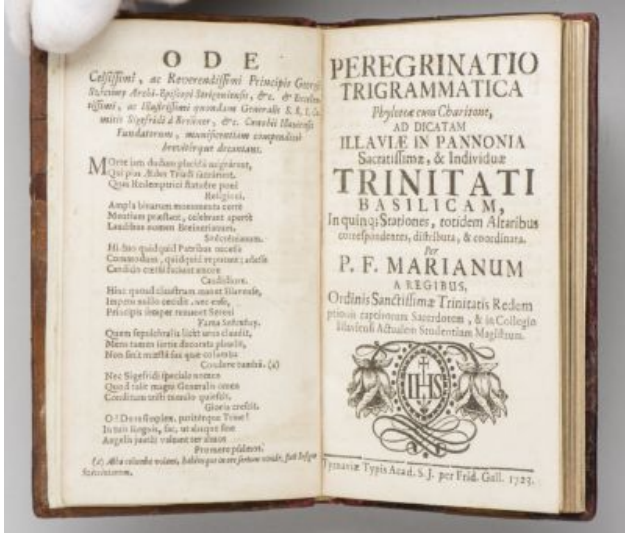 ODE
Celsissimi, ac Reverendissimi Principis Georgii
Archi-Episcopi Strigoniensis, &c. & Excellen-
tissimi, ac Illustrissimi quondam Generalis S. R. I. Co-
mitis Sigefridi à Breüner, &c. Illaviensis
Fundatorum, munificentiam compendiò
breviterque decantans.
MOrte jam dudum placidâ migrârunt,
Qui pias Ædes Triadi sacrârunt,
Quas Redemptrici statuêre poni
Religioni.
Ampla binorum monumenta certè
Mentium præstant, celebrant apertè
Laudibus nomen
Hi suo quidquid Patribus
Commodum, quidquid
Candido
Candidiore.
Hinc quòd claustrum manet Illavense,
Impetu nullo cecidit, nec ense,
Principis semper Sereni
Quem sepulchralis licèt urna claudit,
Mens tamen
Non secùs mœstâ sua quæ columba
Condere tumbâ. (a)
Nec Sigefridi speciale nomen
Quod tulit magni Generalis omen
Conditum tristi tumulo quiescit,
Gloria crescit.
O! Deus simplex, pariterque Trine!
In tuis singulis, fac, ut absque fine
Angelis juncti valeant
Promere
(a) columba volans,
PEREGRINATIO
TRIGRAMMATICA
Phyloteæ cum Charitone,
AD DICATAM
ILLAVIÆ IN PANNONIA
Sacratissimæ, & Individuæ
TRINITATI
BASILICAM,
In quinq; Stationes, totidem Altaribus
correspondentes, distributa, & coordinata.
Per
P. F. MARIANUM
A REGIBUS,
Ordinis Sanctissimæ Trinitatis Redem
ptionis captivorum Sacerdotem, & in Collegio
Illaviensi Actualem Studentium Magistrum.
IHS
Tyrnaviæ Typis Acad. S. J. per Frid. Gall. 1723.